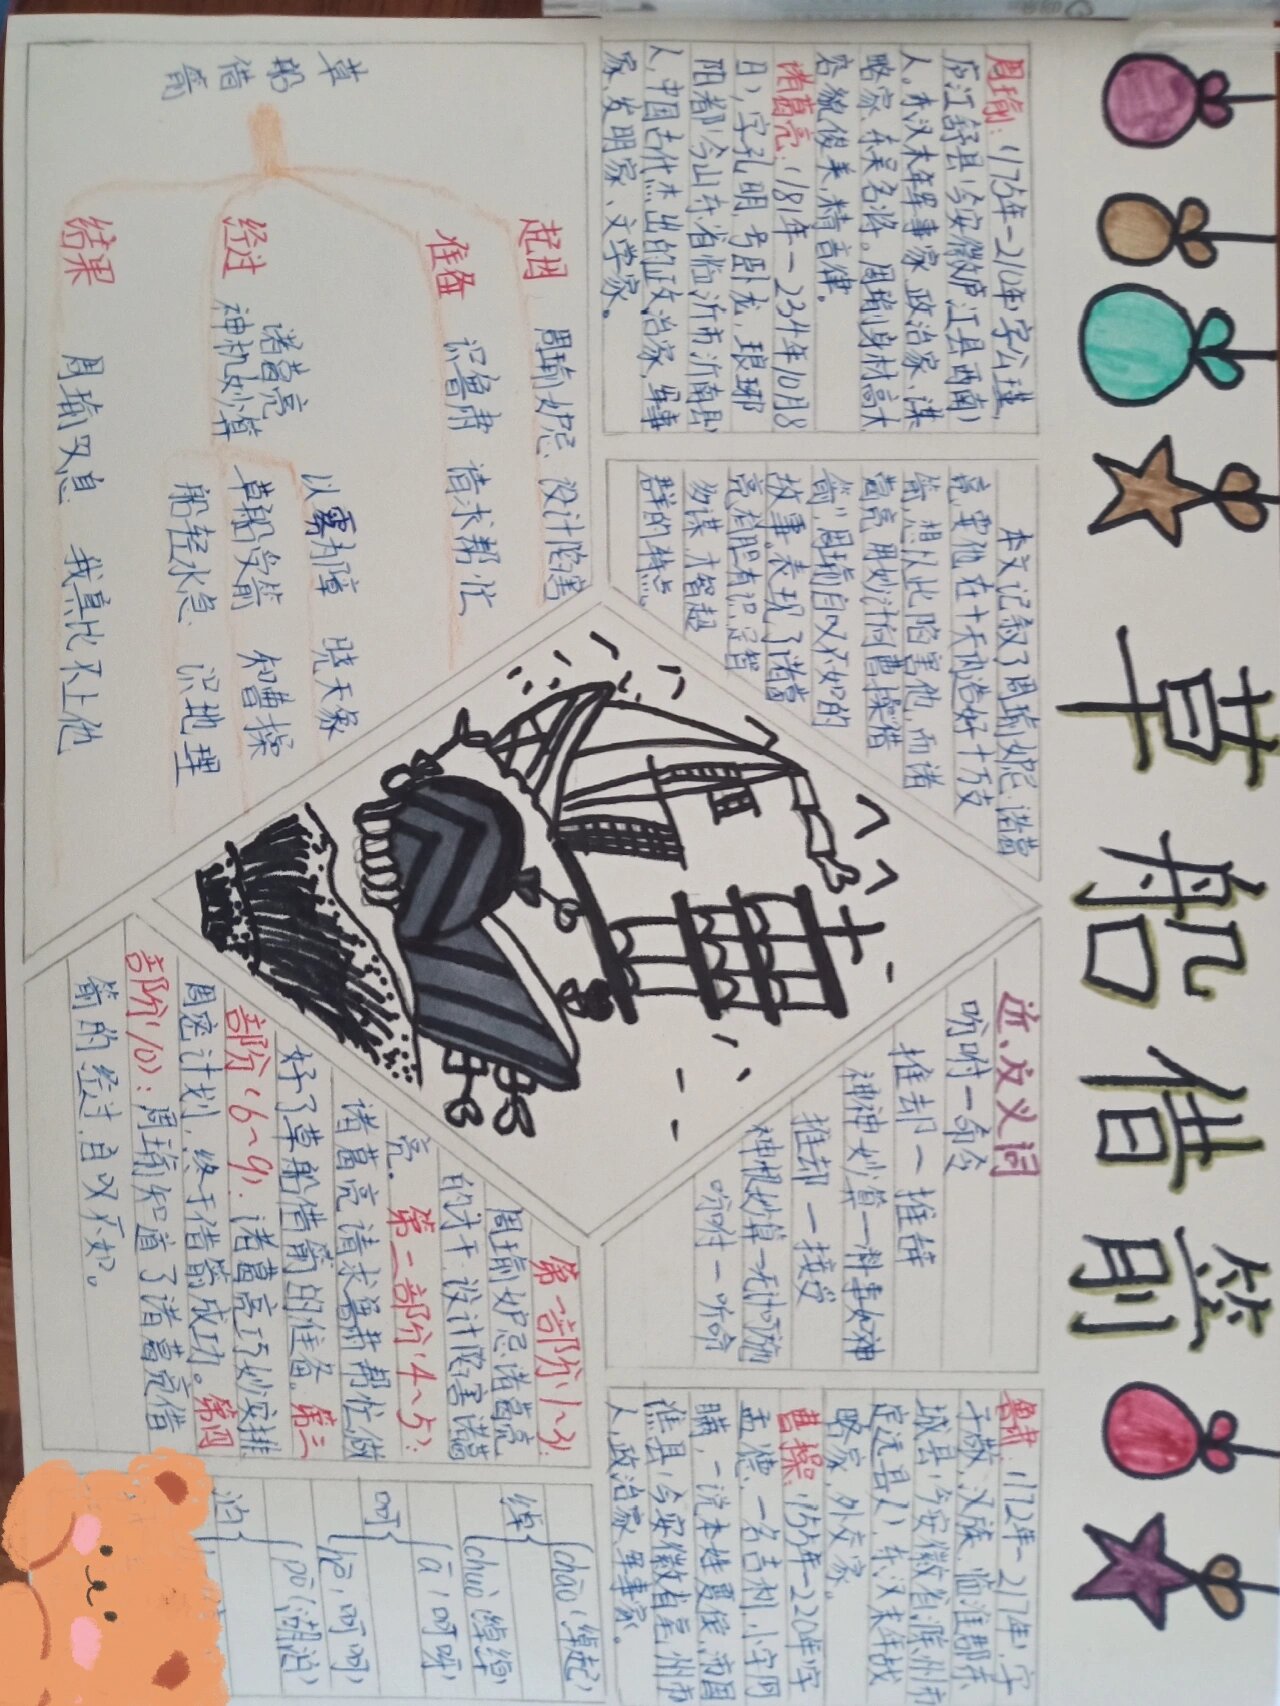 草船借箭
周瑜：(175年-210年)，字公瑾，
庐江舒县(今安徽庐江县西南)
人。东汉末年军事家、政治家、谋
略家、东吴名将。周瑜身材高大、
容貌俊美，精音律。
诸葛亮：(181年-234年10月8
日)，字孔明，号卧龙，琅琊
阳都(今山东省临沂市沂南县)
人，中国古代杰出的政治家、军事
家、发明家、文学家。
本文记叙了周瑜妒忌诸葛
亮，要他在十天内造好十万支
箭，想从此陷害他，而诸
葛亮用妙计向曹操"借
箭"周瑜自叹不如的
故事。表现了诸葛
亮有胆有识，足智
多谋，才智超
群的特点。
近、反义词
吩咐—命令
推却—推辞
神神妙算—料事如神
推却—接受
神机妙算—无计可施
吩咐—听命
鲁肃：(172年-217年)，字
子敬，汉族，临淮郡东
城县(今安徽省滁州市
定远县)人，东汉末年战
略家、外交家。
曹操：(155年-220年)字
孟德，一名吉利，小字阿
瞒，一说本姓夏侯，沛国
谯县(今安徽省亳州市
人，政治家、军事家。
草船借箭
起因 周瑜妒忌 设计陷害
准备 识鲁肃 请求帮忙
经过 诸葛亮神机妙算
以雾为障 晓天象
草船受箭 知曹操
船轻水急 识地理
结果 周瑜叹息 我真比不上他
第一部分(1~3)：
周瑜妒忌诸葛亮
的才干，设计陷害诸葛
亮。第二部分(4~5)：
诸葛亮请求鲁肃帮忙，做
好了草船借箭的准备。第三
部分(6~9)：诸葛亮巧妙安排
周密计划，终于借箭成功。第四
部阶(10)：周瑜知道了诸葛亮借
箭的经过，自叹不如。
绰{chāo(绰起)
chuò(绰绰)
呵{ā(呵呀)
hē(呵呵)
泊{pō(湖泊)